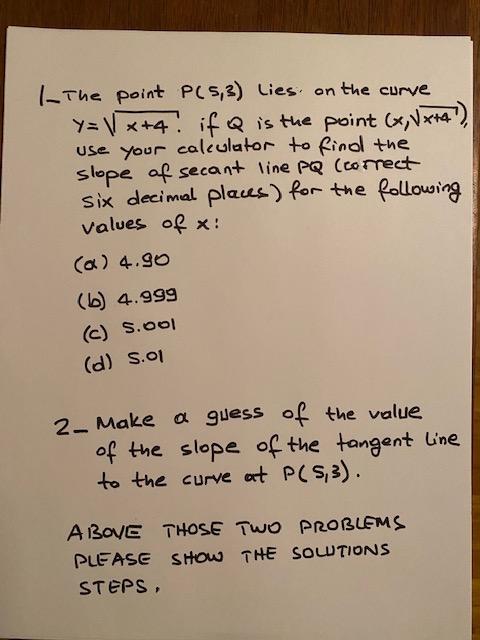 1_ The point P(5,3) lies on the curve
y=√x+4. if Q is the point (x,√x+4),
use your calculator to find the
slope of secant line PQ (correct
six decimal places) for the following
values of x:
(a) 4.90
(b) 4.999
(c) 5.001
(d) 5.01
2_ Make a guess of the value
of the slope of the tangent line
to the curve at P(5,3).
ABOVE THOSE TWO PROBLEMS
PLEASE SHOW THE SOLUTIONS
STEPS.